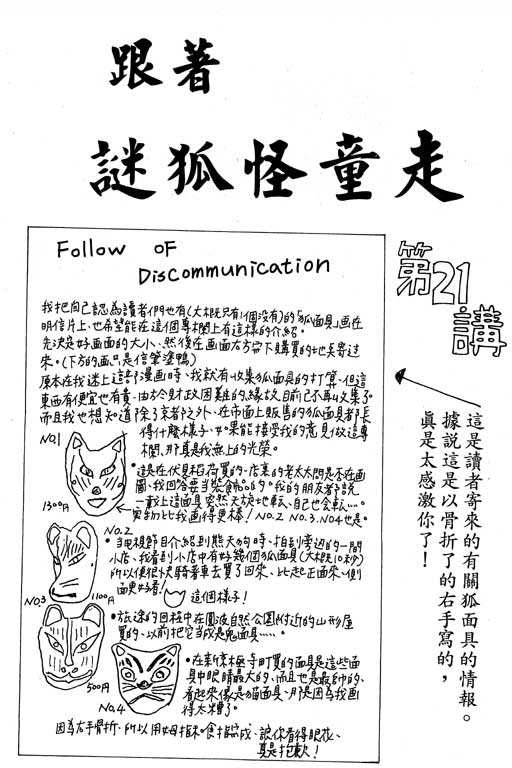 跟著
謎狐怪童走
第21講
Follow OF
Discommunication
我把自己認為讀者們也有(大概只有1個沒有)的「狐面具」画在
明信片上、也希望能在這個專欄上有這樣的介紹。
先決定好画面的大小、然後在画面右方写下購買的地点寄过
來。(下方的画只是信筆塗鴨)
原本在我迷上這部漫画時、我就有收集狐面具的打算、但這
東西有便宜也有貴、由於財政困難的緣故、目前已不再收集了
而且我也想知道除了京都之外、在市面上販售的狐面具都長
得什麼樣子、如果能接受我的意見做這專
欄、那真是我無上的光榮。
NO.1
1300円
•這是在伏見稻荷買的、店業的老太太問是不在画
圖、我回答要当裝飾品的。我的朋友都說
一戴上這面具突然天旋地転、自己也会転…。
実物比我画得更棒！NO.2 NO.3.NO4也是。
NO.2
1100円
•当電視節目介紹到熊天狗時、拍到旁边的一間
小店、我看到小店中有好幾個狐面具(大概10秒)
所以便很快騎著車去買了回來、比起正面來、側
面更好看！
這個樣子！
NO.3
500円
•旅途的回程中在國液自然公園附近的山形屋
買的、以前把它当成是鬼面具……。
NO.4
•在新京極寺町買的面具是這些面
具中眼睛最大的、而且也是最帥的、
看起來像是貓面具、那是因為我画
得太糟了。
因為右手骨折、所以用姆指和食指寫成、讓你看得眼花、
真是抱歉！
這是讀者寄來的有關狐面具的情報。
據說這是以骨折了的右手寫的，
真是太感激你了！